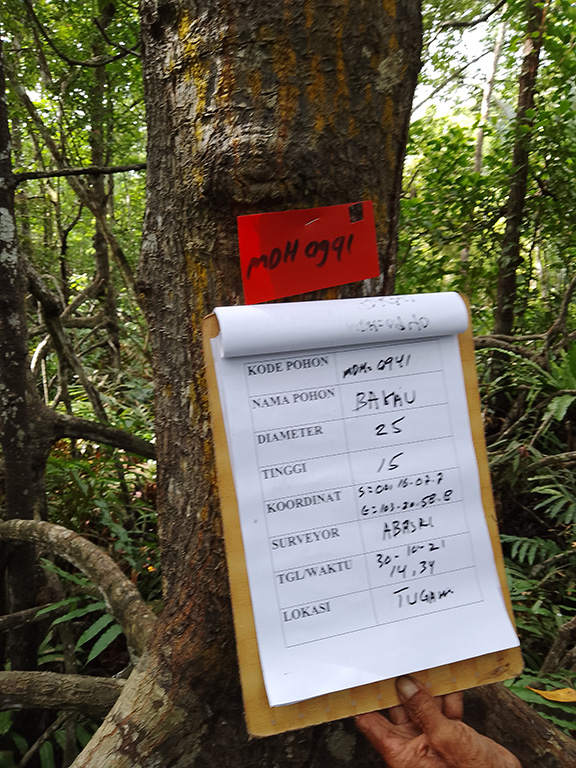 MDH 0941
KODE POHON MDH-0941
NAMA POHON BAKAU
DIAMETER 25
TINGGI 15
KOORDINAT S=00.16-07.7
E=103-20.58.8
SURVEYOR ABASRI
TGL/WAKTU 30-10-21
14,34
LOKASI